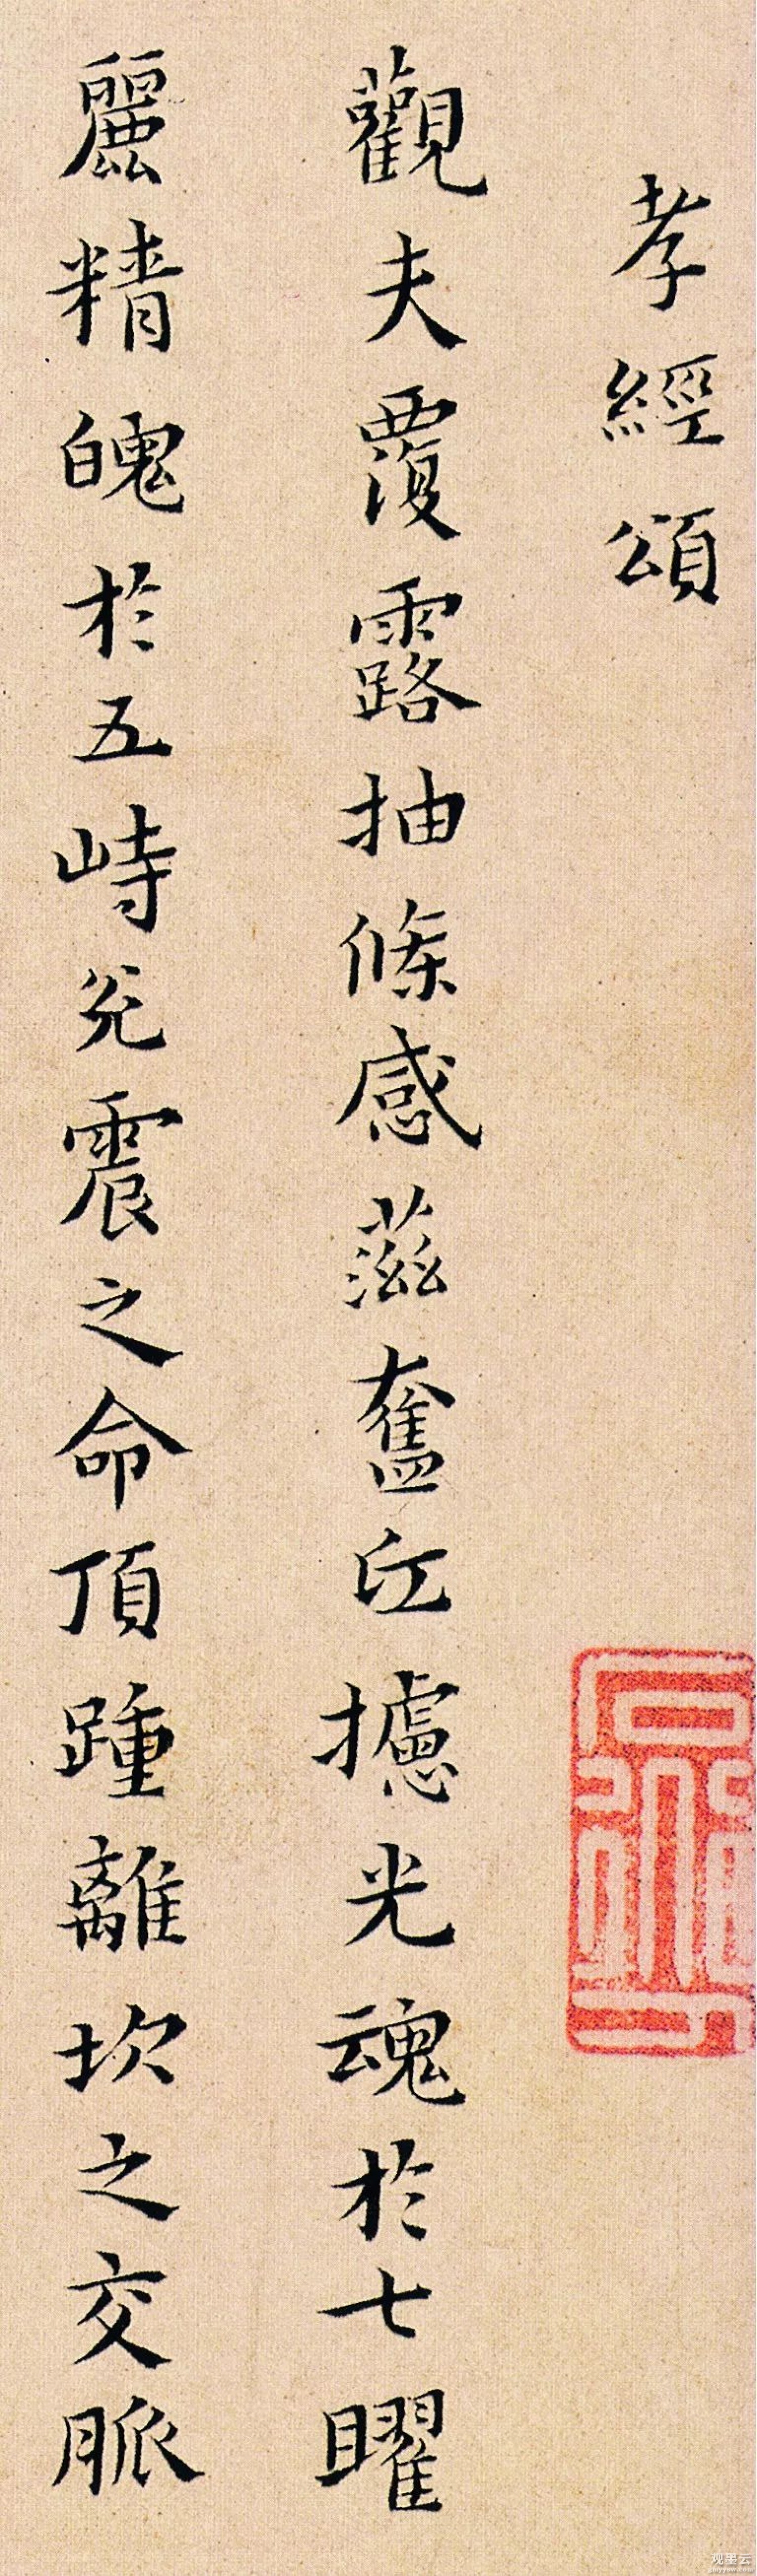 孝經頌
觀夫覆露抽條感茲奮丘攄光魂於七曜
麗精魄於五峙兊震之命頂踵離坎之交脈
观墨云